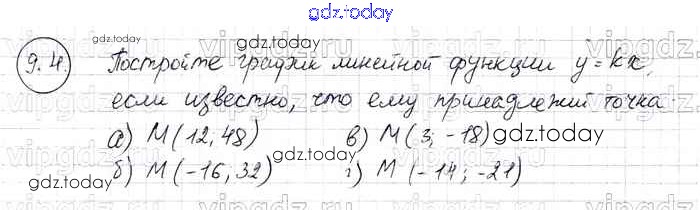 gdz.today
9.4. Постройте график линейной функции y=kx,
если известно, что ему принадлежит точка
а) М(12,48) в) М(3;-18)
б) М(-16;32) г) М(-14;-21)
gdz.today
gdz.today
gdz.today
gdz.today